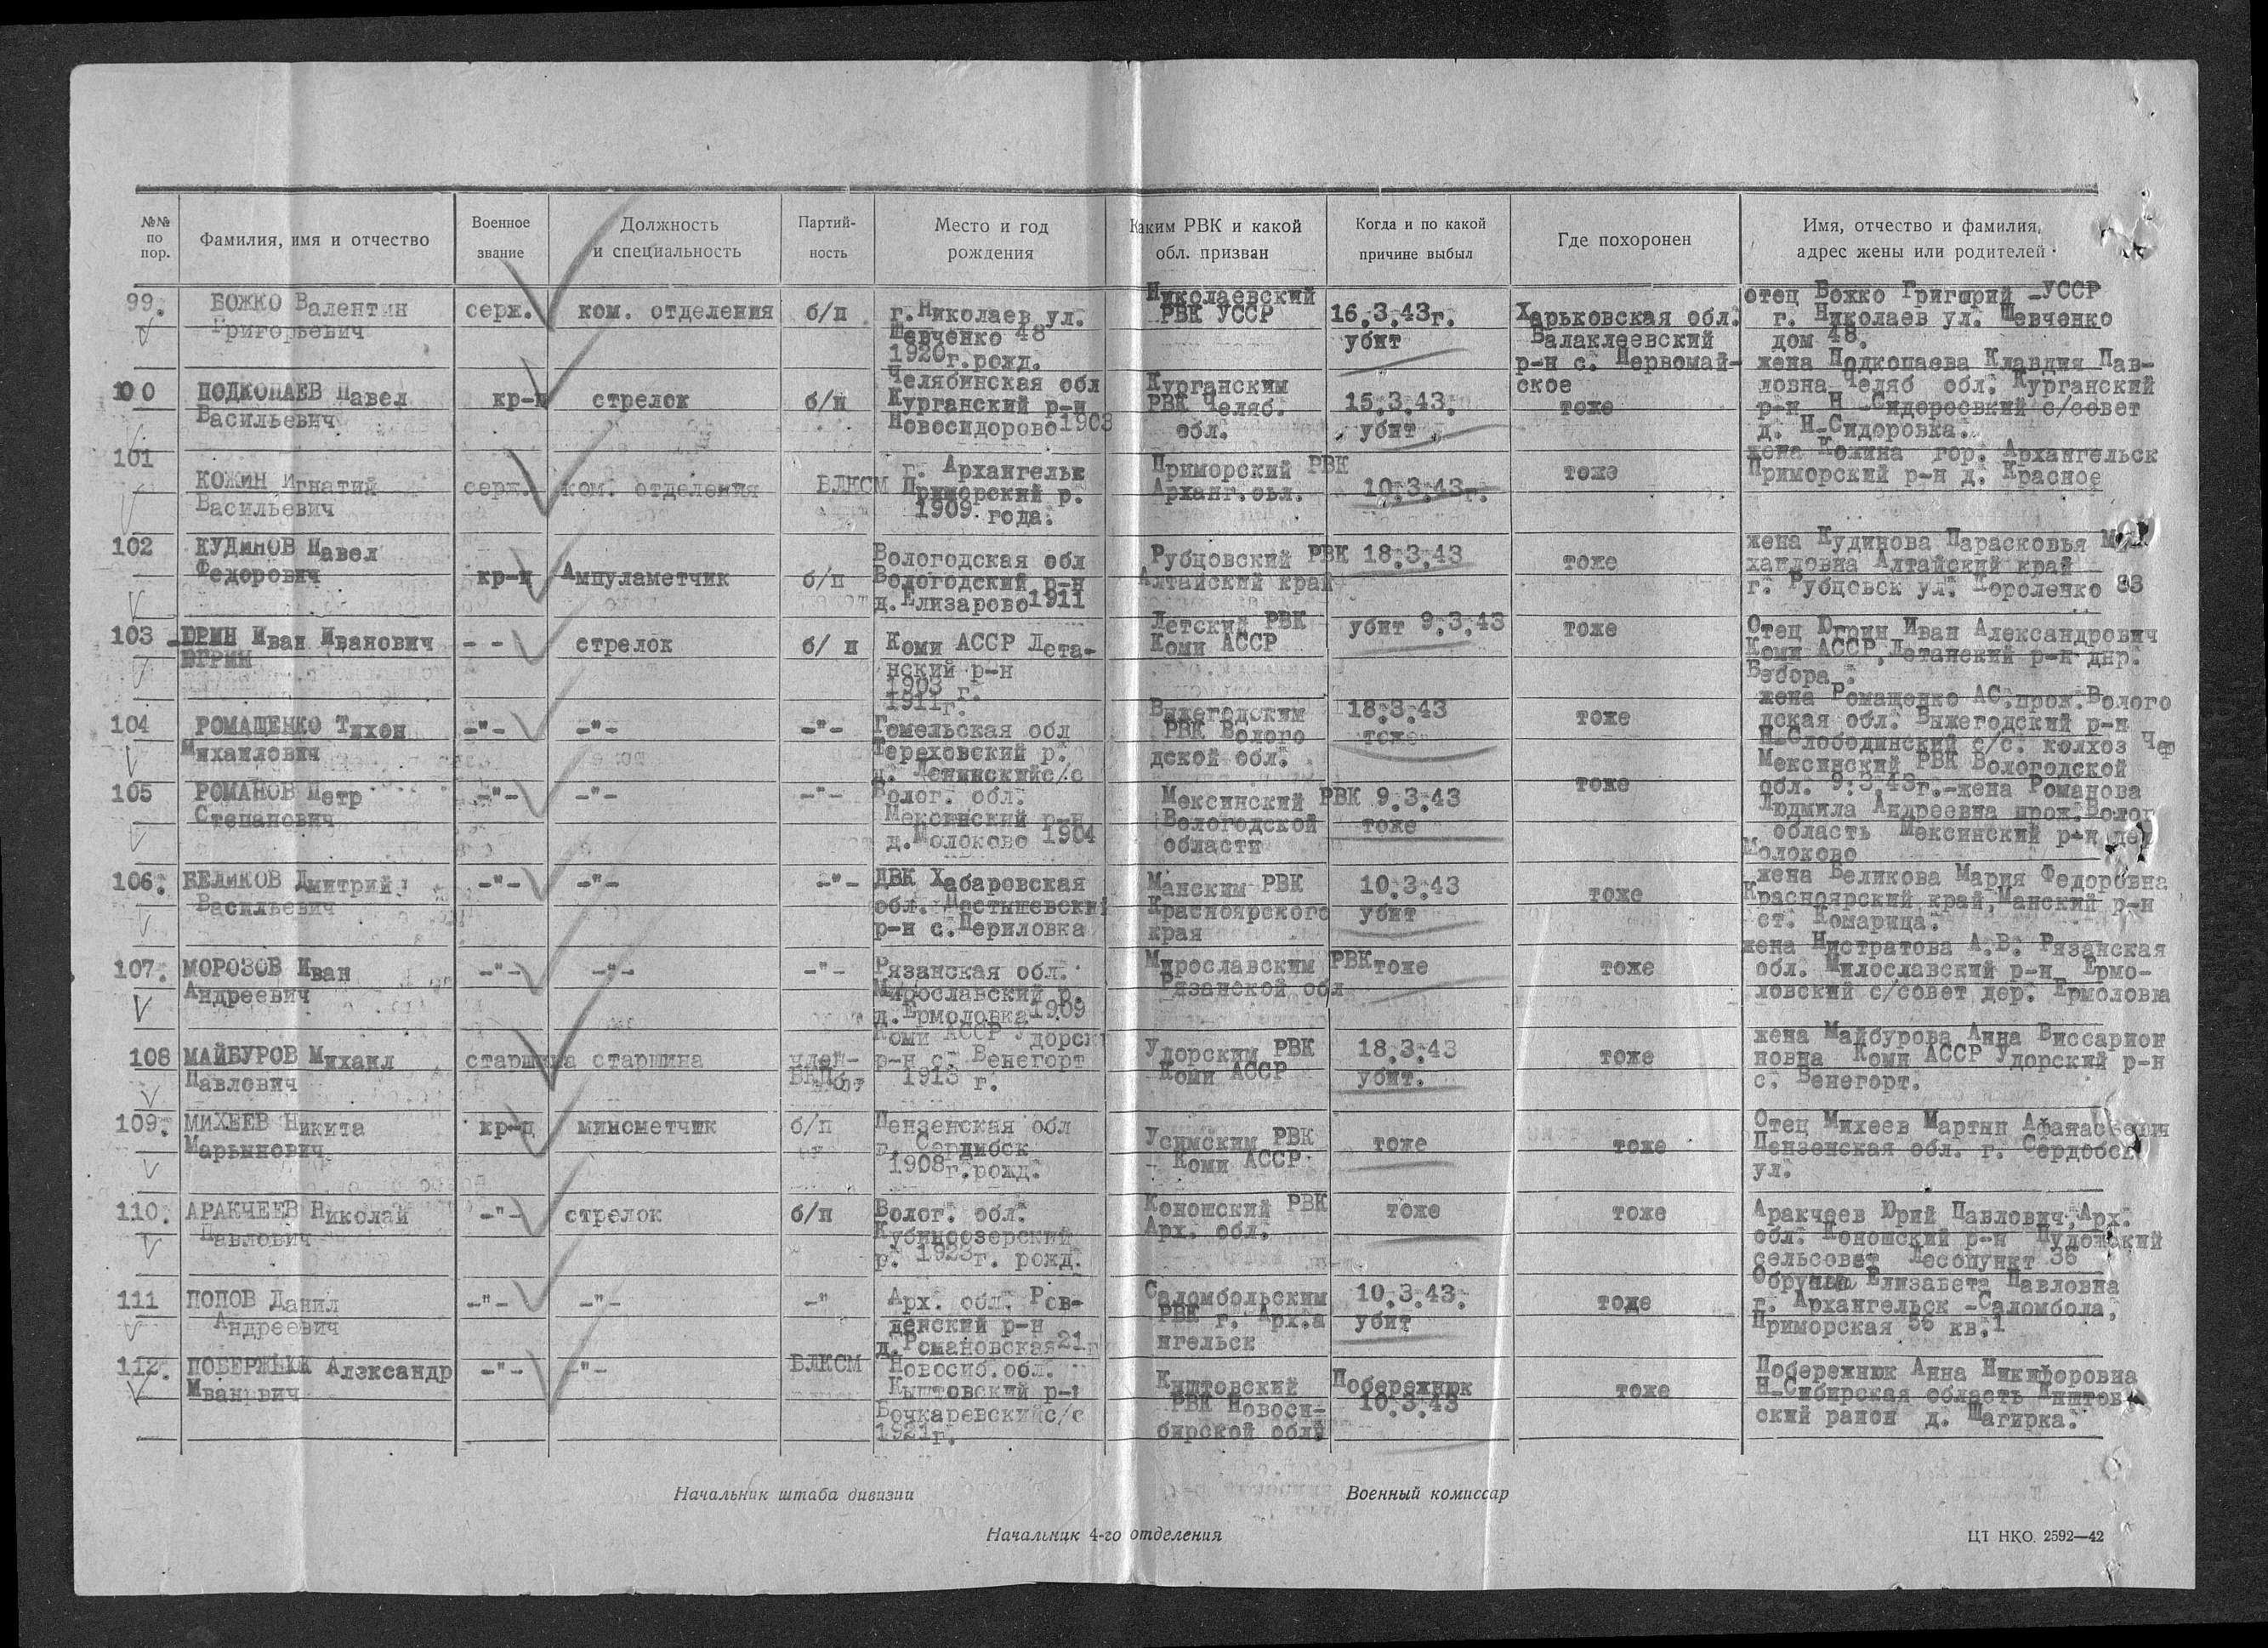 №№ по пор.
Фамилия, имя и отчество
Военное звание
Должность и специальность
Партий- ность
Место и год рождения
Каким РВК и какой обл. призван
Когда и по какой причине выбыл
Где похоронен
Имя, отчество и фамилия, адрес жены или родителей
99. БОЖКО Валентин Григорьевич
серж.
ком. отделения
б/п
г. Николаев ул.
Шевченко 48
1920г. рожд.
Николаевский
РВК УССР
16.3.43г.
убит
Харьковская обл.
Балаклеевский
р-н с. Первомай-
ское
отец Божко Григорий -УССР
г. Николаев ул. Шевченко
дом 48.
100 ПОДКОПАЕВ Павел
Васильевич
кр-ц
стрелок
б/п
Челябинская обл
Курганский р-н
Новосидорово 1903
Курганским
РВК Челяб.
обл.
15.3.43.
убит
тоже
жена Подкопаева Клавдия Пав-
ловна Челяб обл. Курганский
р-н Н-Сидоросвкий с/совет
д. Н-Сидоровка.
101
КОЖИН Игнатий
Васильевич
серж.
ком. отделения
ВЛКСМ
г. Архангельк
Приморский р.
1909 года.
Приморский РВК
Арханг. обл.
10.3.43г.
тоже
жена Кожина гор. Архангельск
Приморский р-н д. Красное
102 КУДИНОВ Павел
Федорович
кр-ц
Ампуламетчик
б/п
Вологодская обл
Вологодский р-н
д. Елизарово 1911
Рубцовский РВК
Алтайский край
18.3.43
тоже
жена Кудинова Парасковья
хайловна Алтайский край
г. Рубцовск ул. Короленко 88
103 -ЮРИН Иван Иванович
ЮГРИН
- -
стрелок
б/ п
Коми АССР Лета-
нский р-н
1903 г.
Летский РВК
Коми АССР
убит 9.3.43
тоже
Отец Югрин Иван Александрович
Коми АССР, Летанский р-н днр.
Взбора.
104 РОМАЩЕНКО Тихон
Михайлович
-"-
-"-
-"-
1911г.
Гомельская обл
Тереховский р.
д. Ленинский с/с
Вижегодским
РВК Волого
дской обл.
18.3.43
тоже
тоже
жена Ромащенко АС. прож. Волого
дская обл. Вижегодский р-н
Н-Слободинский с/с. колхоз Чер
105 РОМАНОВ Петр
Степанович
-"-
-"-
-"-
Волог. обл.
Мексинский р-н
д. Молоково 1904
Мексинский РВК
Вологодской
области
9.3.43
тоже
тоже
Мексинский РВК Вологодской
обл. 9.3.43г.-жена Романова
Людмила Андреевна прож. Волог
область Мексинский р-н дер
Молоково
106. ВЕЛИКОВ Дмитрий
Васильевич
-"-
-"-
-"-
ДВК Хабаровская
обл. Пастышевский
р-н с. Периловка
Манским РВК
Красноярского
края
10.3.43
убит
тоже
жена Великова Мария Федоровна
Красноярский край, Манский р-н
ст. Комарица.
107. МОРОЗОВ Иван
Андреевич
-"-
-"-
-"-
Рязанская обл.
Мирославский р.
д. Ермоловка 1909
Мирославским РВК
Рязанской обл
тоже
тоже
жена Нистратова А.В. Рязанская
обл. Милославский р-н Ермо-
ловский с/совет дер. Ермоловка
108 МАЙБУРОВ Михаил
Павлович
старшина
старшина
член-
ВКПб
Коми АССР Удорск
р-н с. Венегорт
1913 г.
Удорским РВК
Коми АССР
18.3.43
убит.
тоже
жена Майбурова Анна Виссарион
новна Коми АССР Удорский р-н
с. Венегорт.
109. МИХЕЕВ Никита
Мартынович
кр-ц
минометчик
б/п
Пензенская обл
г. Сердобск
1908г. рожд.
Усимским РВК
Коми АССР
тоже
тоже
Отец Михеев Мартын Афанасьевич
Пензенская обл. г. Сердобск
ул.
110. АРАКЧЕЕВ Николай
Павлович
-"-
стрелок
б/п
Волог. обл.
Кубиноозерский
р. 1923г. рожд.
Коношский РВК
Арх. обл.
тоже
тоже
Аракчеев Юрий Павлович, Арх.
обл. Коношский р-н Пудожский
сельсовет Лесопункт 35
111 ПОПОВ Данил
Андреевич
-"-
-"-
-"
Арх. обл. Ров-
денский р-н
д. Романовская 21г
Саломбольским
РВК г. Арх.а
нгельск
10.3.43.
убит
тоже
Елизавета Павловна
г. Архангельск -Саломбола,
Приморская 56 кв. 1
112. ПОБЕРЖНЮК Александр
Иванович
-"-
-"-
ВЛКСМ
Новосиб. обл.
Кыштовский р-н
Бочкаревский с/с
1921г.
Киштовский
РВК Новоси-
бирской обл.
Побережнюк
10.3.43
тоже
Побережнюк Анна Никифоровна
Н-Сибирская область Киштов
ский район д. Шагирка.
Начальник штаба дивизии
Военный комиссар
Начальник 4-го отделения
ЦТ НКО. 2592—42